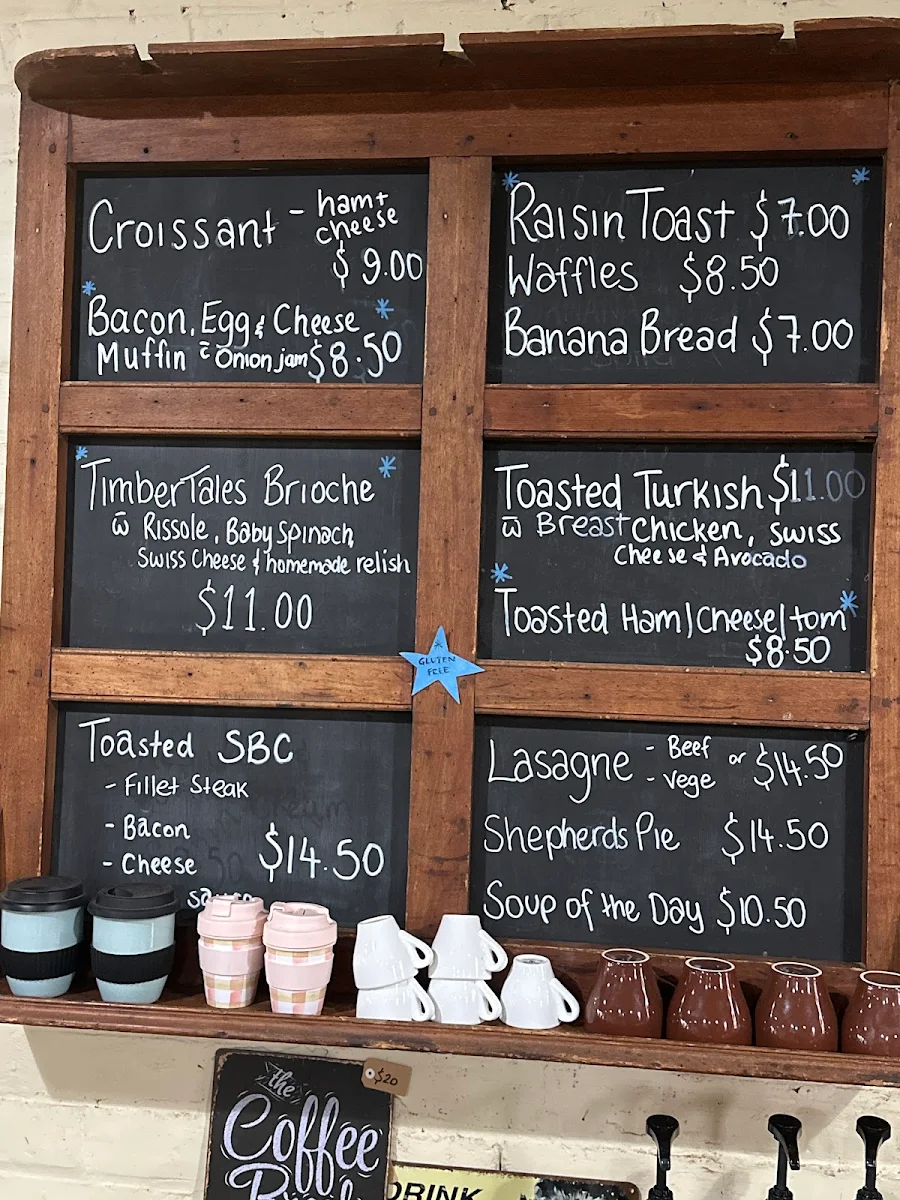 Croissant - ham +
cheese
$9.00
Bacon, Egg & Cheese
Muffin c̄ Onion jam $8.50
Raisin Toast $7.00
Waffles $8.50
Banana Bread $7.00
TimberTales Brioche
w̄ Rissole, Baby Spinach,
Swiss Cheese & homemade relish
$11.00
Toasted Turkish $11.00
w̄ Breast Chicken, Swiss
Cheese & Avocado
Toasted Ham/Cheese/tom
$8.50
* GLUTEN
FREE
Toasted SBC
- Fillet Steak
- Bacon
- Cheese $14.50
Lasagne - Beef or $14.50
- vege
Shepherds Pie $14.50
Soup of the Day $10.50
$20
the
Coffee
DRINK